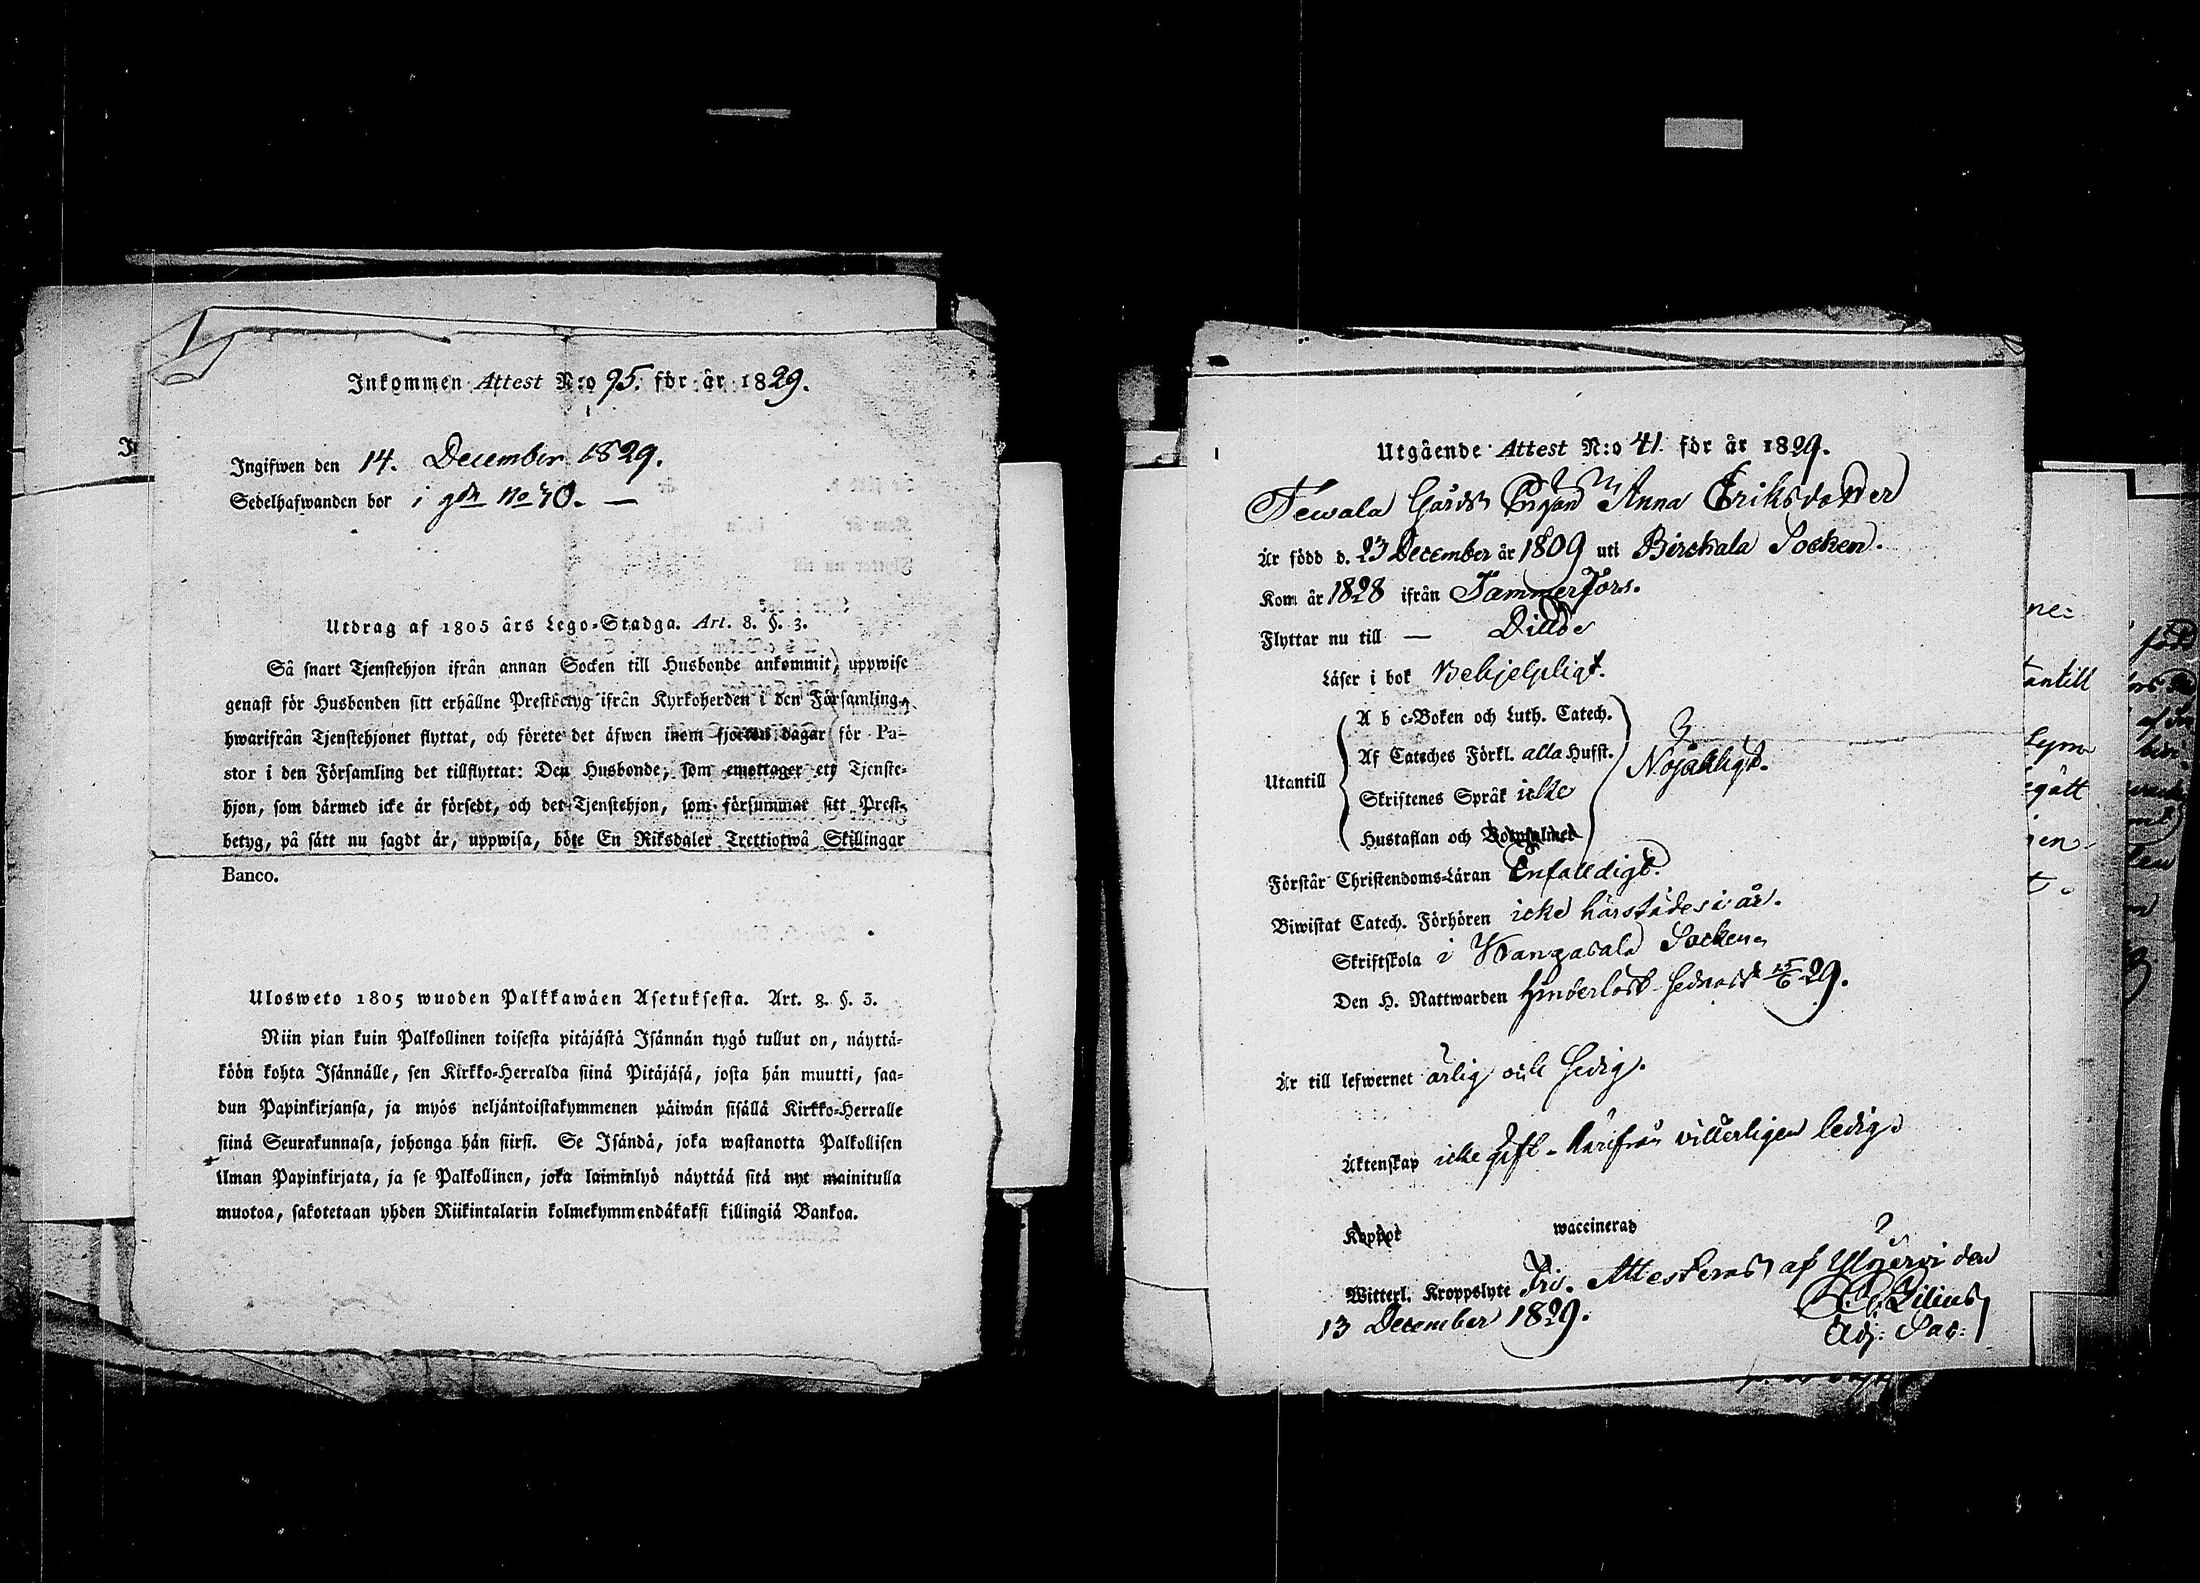 Inkommen Attest N:o 95. för år 1829.
Ingifwen den 14. December 1829.
Sedelhafwanden bor i gdn No 40. —
Utdrag af 1805 års Lego-Stadga. Art. 8. §. 3.
Så snart Tjenstehjon ifrån annan Socken till Husbonde ankommit, uppwise
genast för Husbonden sitt erhållne Prestbetyg ifrån Kyrkoherden i den Församling,
hwarifrån Tjenstehjonet flyttat, och förete det äfwen inom fjorton dagar för Pa-
stor i den Församling det tillflyttat: Den Husbonde, som emottager ett Tjenste-
hjon, som därmed icke är försedt, och det Tjenstehjon, som försummar sitt Prest-
betyg, på sätt nu sagdt är, uppwisa, böte En Riksdaler Trettiotwå Skillingar
Banco.
Ulosweto 1805 wuoden Palkkawäen Asetuksesta. Art. 8. §. 3.
Niin pian kuin Palkollinen toisesta pitäjästä Isännän tygö tullut on, näyttä-
köön kohta Isännälle, sen Kirkko-Herralda siinä Pitäjäsä, josta hän muutti, saa-
dun Papinkirjansa, ja myös neljäntoistakymmenen päiwän sisällä Kirkko-Herralle
siinä Seurakunnasa, johonga hän siirsi. Se Isändä, joka wastanotta Palkollisen
ilman Papinkirjata, ja se Palkollinen, joka laiminlyö näyttää sitä nyt mainitulla
muotoa, sakotetaan yhden Riikintalarin kolmekymmendäkaksi killingiä Bankoa.
Utgående Attest N:o 41 för år 1829.
Tewala Gårds Pigan Anna Eriksdotter
Är född d. 23 December år 1809 uti Birckala Socken.
Kom år 1828 ifrån Tammerfors.
Flyttar nu till — Dito
Läser i bok Behjelpligt.
Utantill
A b c-Boken och Luth. Catech.
Af Cateches Förkl. alla Hufst.
Nöjaktligt.
Skriftenes Språk icke
Hustaflan och Botpsalmer
Förstår Christendoms-Läran Enfalldigt.
Biwistat Catech. Förhören icke härstädes i år.
Skriftskola i Kangasala Socken
Den H. Nattwarden hinderlöst sednast 25/6 29.
Är till lefwernet ärlig och sedig.
Äktenskap icke gift - härifrån vitterligen ledig.
Koppor waccinerad
Witterl. Kroppslyte fri. Attesteras af Ylöjerwi den
13 December 1829.
Adj: Sac: